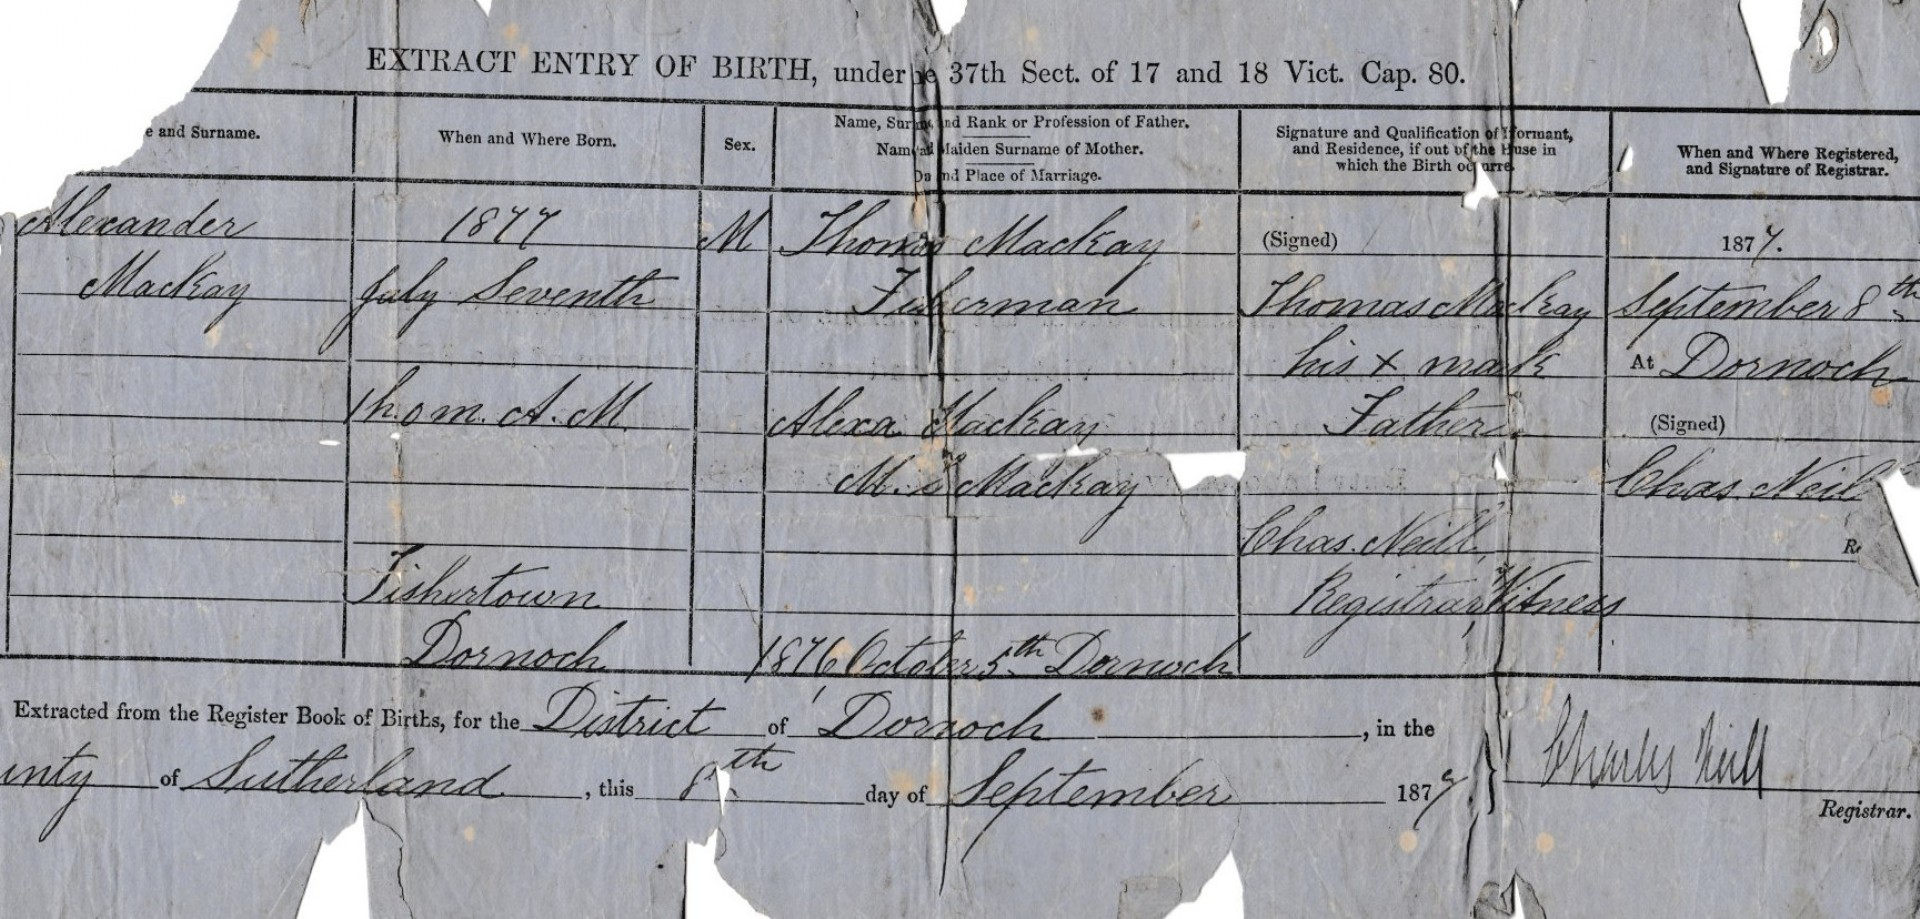 EXTRACT ENTRY OF BIRTH, under he 37th Sect. of 17 and 18 Vict. Cap. 80.
e and Surname.
Alexander
Mackay
When and Where Born.
1877
July Seventh
1h. 0m. A.M.
Fishertown
Dornoch
Sex.
M
Name, Surn and Rank or Profession of Father.
Name and Maiden Surname of Mother.
nd Place of Marriage.
Thomas Mackay
Fisherman
Alexa Mackay
M. S. Mackay
1876 October 5th Dornoch
Signature and Qualification of Informant,
and Residence, if out of the House in
which the Birth occurre
(Signed)
Thomas Mackay
his x mark
Father
Chas. Neill,
Registrar, Witness
When and Where Registered,
and Signature of Registrar.
1877.
September 8th
At Dornoch
(Signed)
Chas. Neil
Re
Extracted from the Register Book of Births, for the District of Dornoch, in the
unty of Sutherland, this 8th day of September 1877 }
Charles Neill
Registrar.